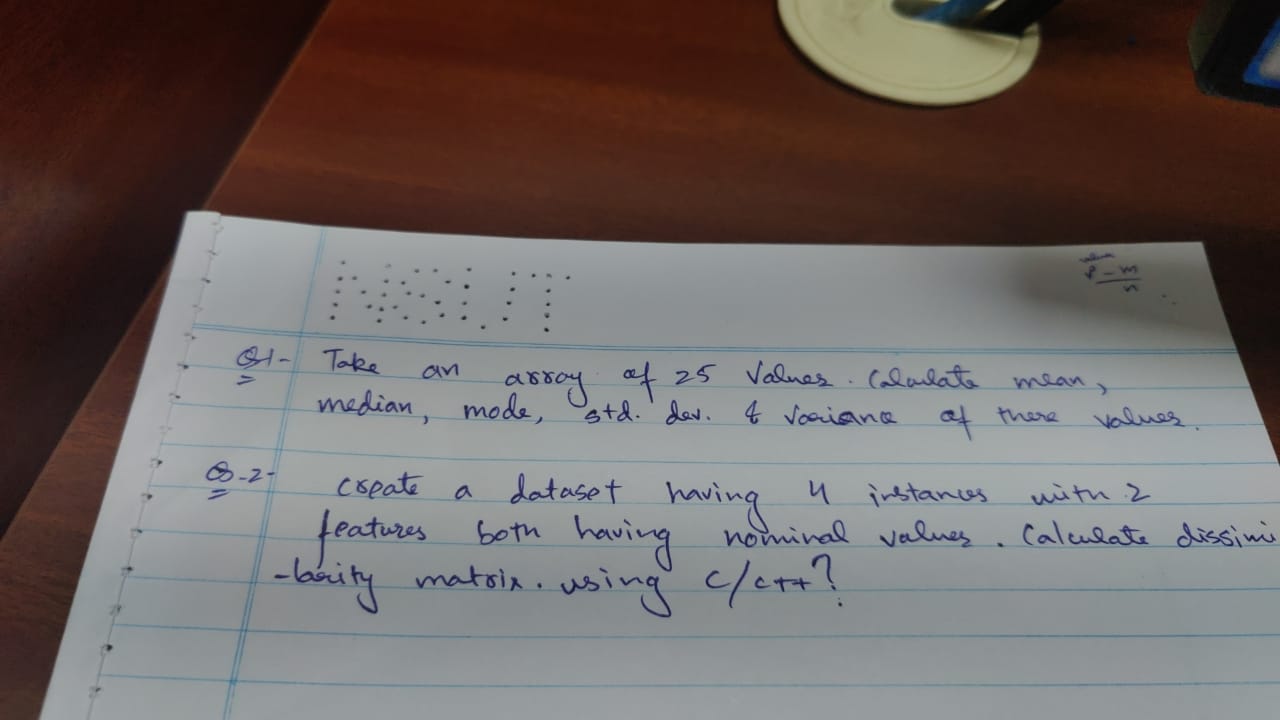 p - m
n
Q1- Take an array of 25 values. Calculate mean,
median, mode, std. dev. & variance of these values.
Q-2- create a dataset having 4 instances with 2
features both having nominal values. Calculate dissimi
-larity matrix. using c/c++?